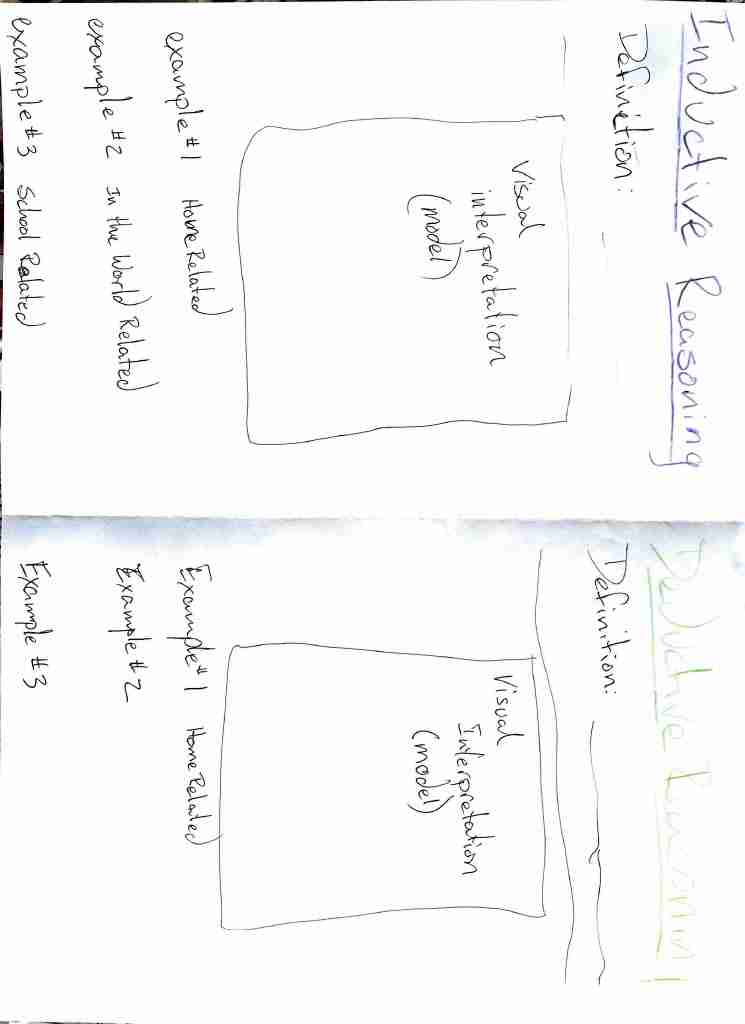 Inductive Reasoning
Definition:
Visual
interpretation
(model)
example #1 Home Related
example #2 In the World Related
example #3 School Related
Deductive Reasoning
Definition:
Visual
Interpretation
(model)
Example #1 Home Related
Example #2
Example #3